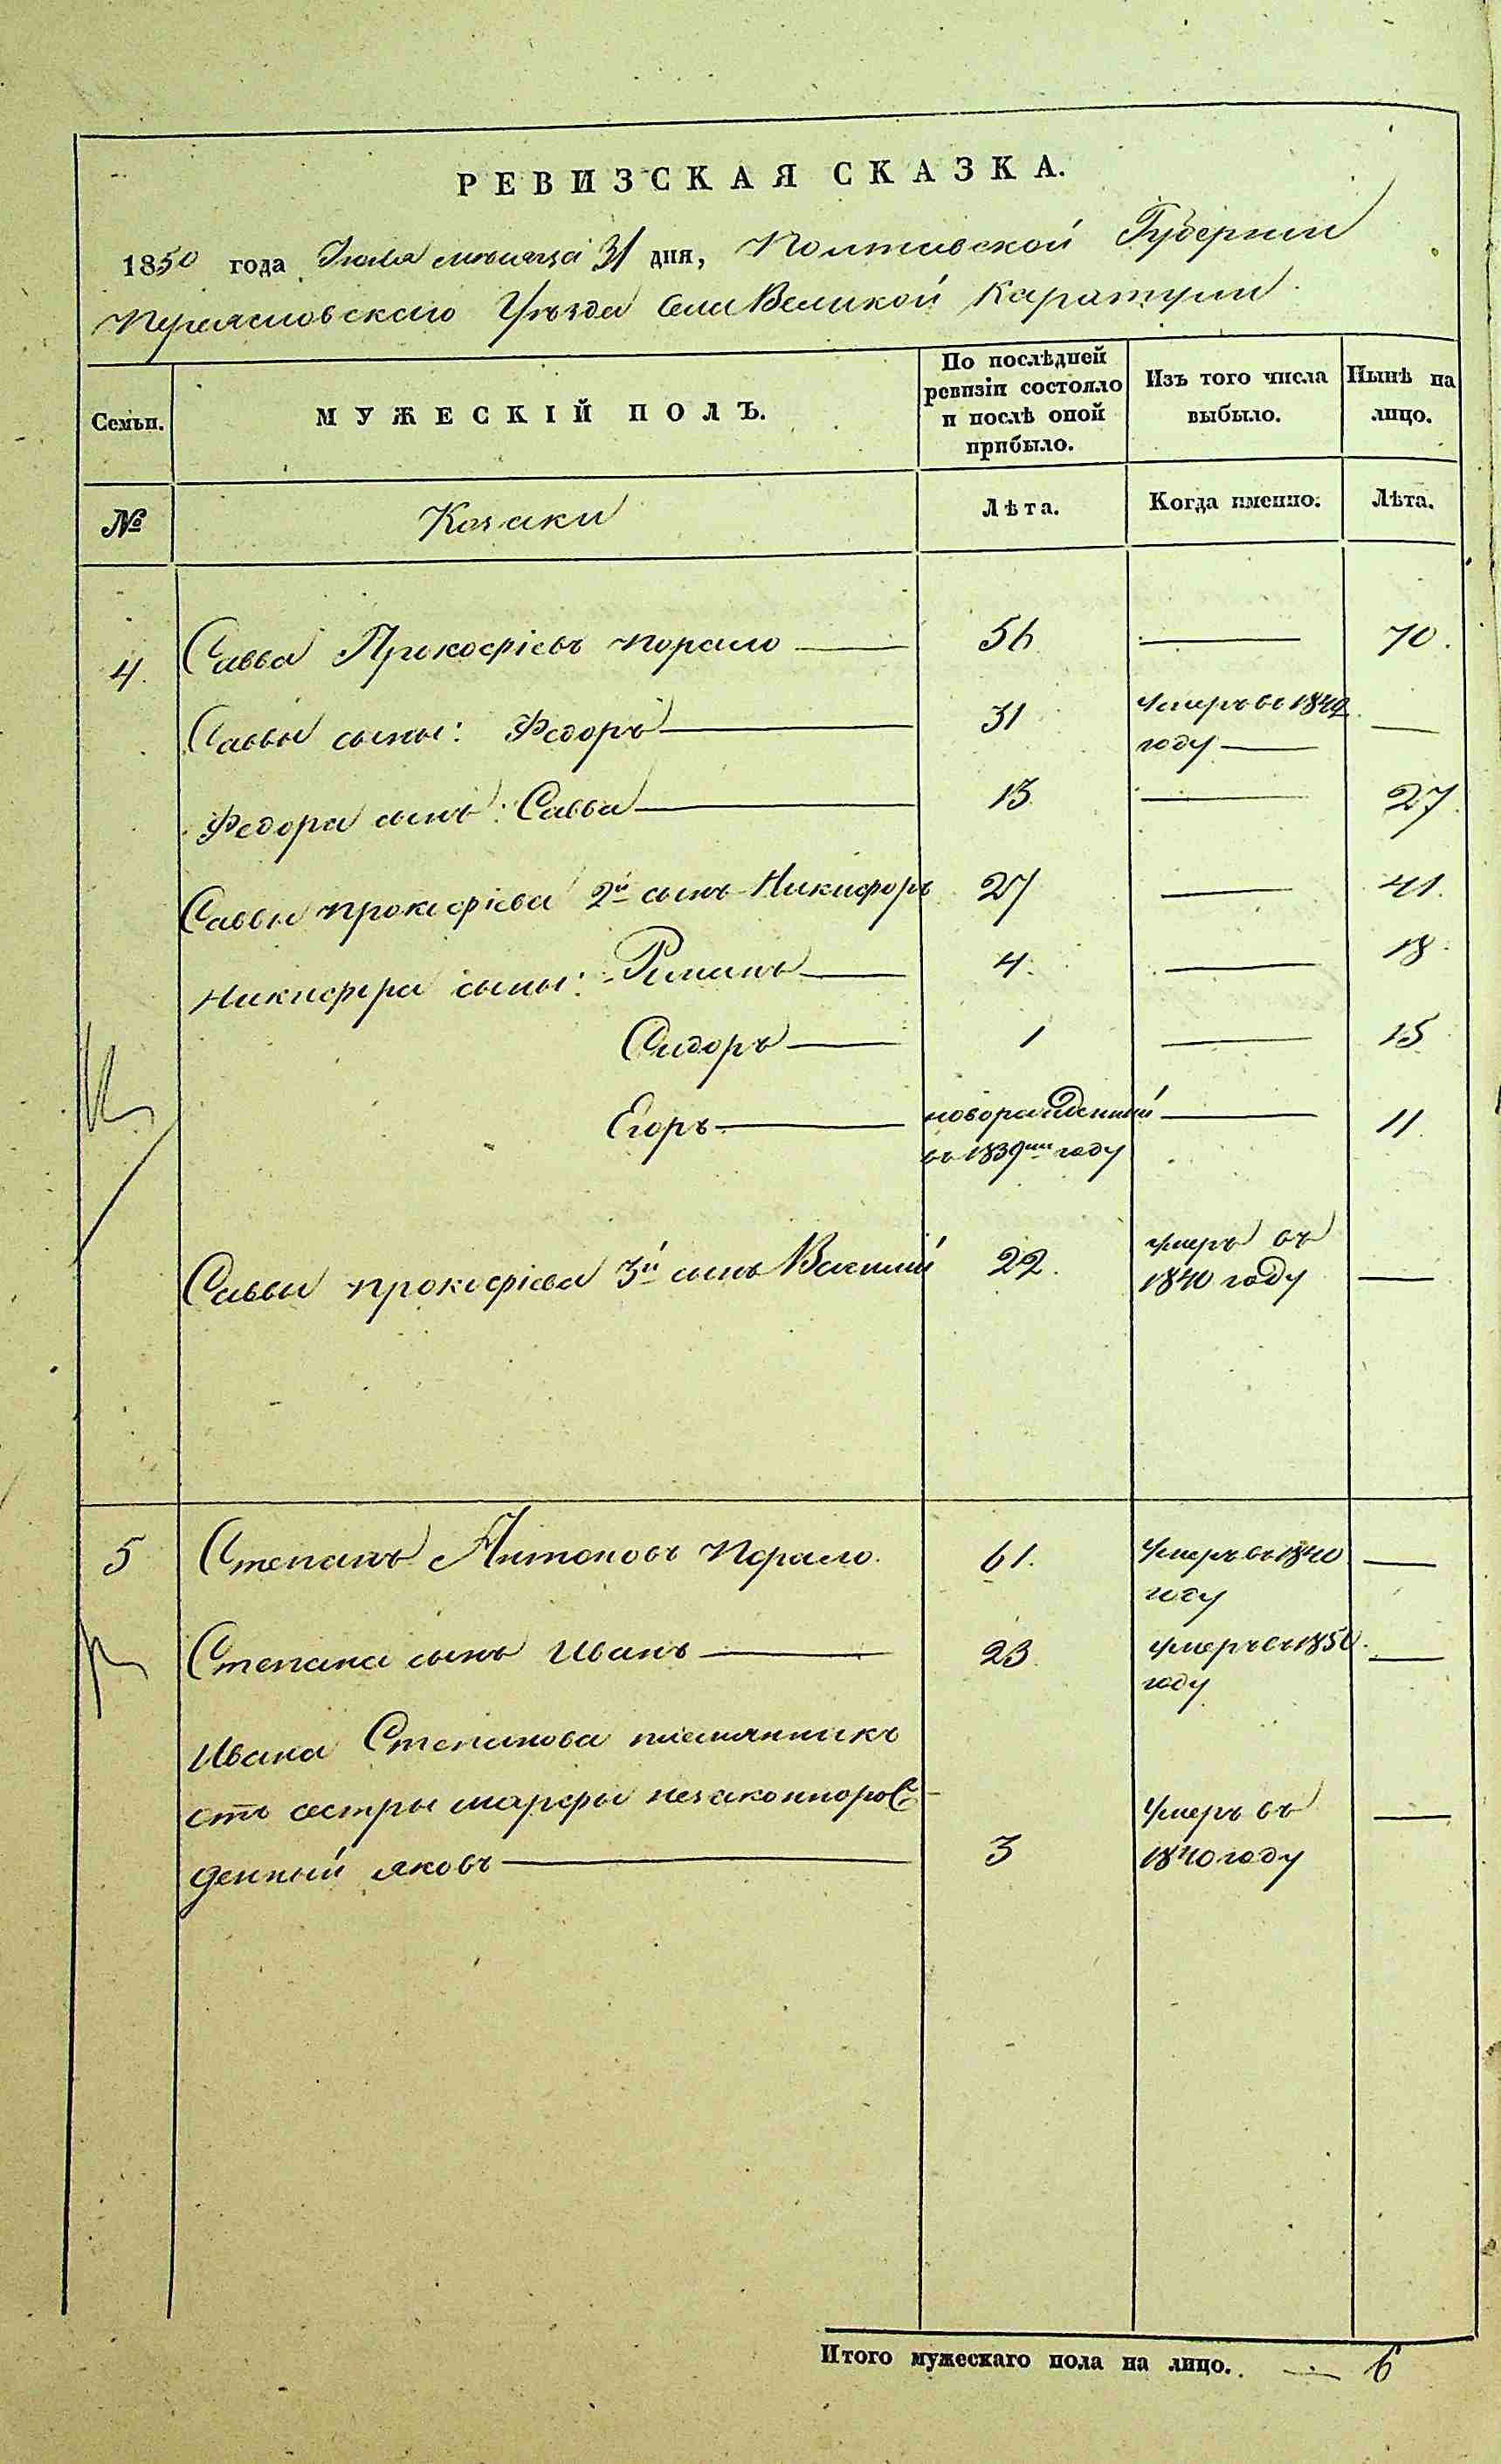 РЕВИЗСКАЯ СКАЗКА.
1850 года Іюля месяца 31 дня, Полтавской Губерніи
Переяславскаго Уѣзда Села Великой Каратули
Семьи. МУЖЕСКІЙ ПОЛЪ. По послѣдней ревизіи состояло и послѣ оной прибыло. Изъ того числа выбыло. Нынѣ на лицо.
№ Козаки Лѣта. Когда именно. Лѣта.
4. Савва Прокофіевъ Порало 56 70.
Саввы сыны: Федоръ 31 Умеръ въ 1849 году
Федора сынъ: Савва 13 27
Саввы Прокофіева 2й сынъ Никифоръ 27 41.
Никифора сыны: Романъ 4. 18.
Сидоръ 1 15
Егоръ новорожденный въ 1839мъ году 11.
Саввы Прокофіева 3й сынъ Василий 22. умеръ въ 1840 году
5 Степанъ Антоновъ Порало. 61. Умеръ въ 1840 году
Степана сынъ Иванъ 23 умеръ въ 1850 году
Ивана Степанова племянникъ
отъ сестры Марфы незаконнорож-
денный Яковъ 3 Умеръ въ 1840 году
Итого мужескаго пола на лицо. 6